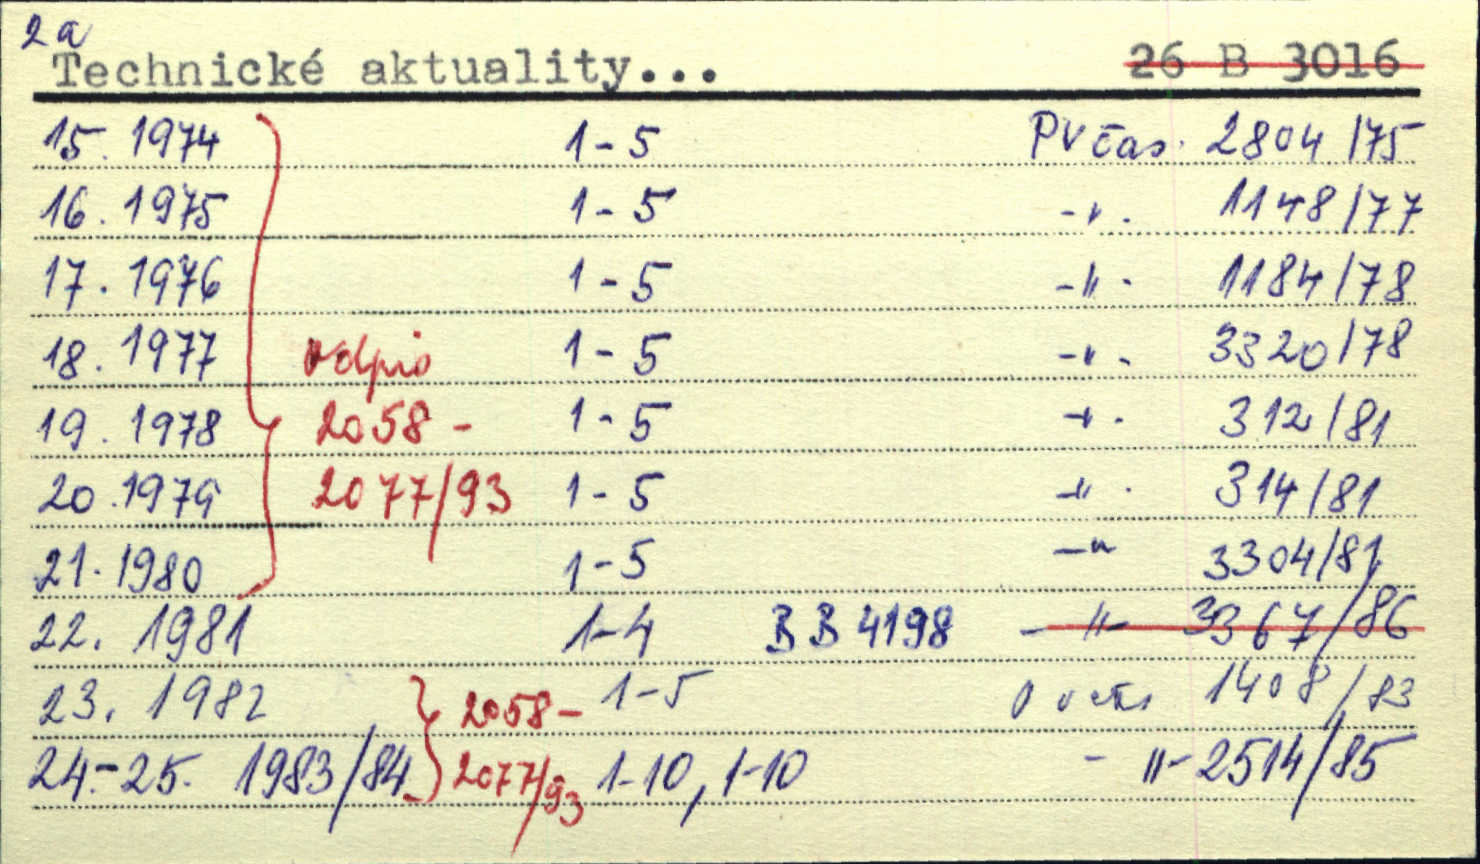 2a
Technické aktuality... 26 B 3016
15. 1974 1-5 PV čas. 2804/75
16. 1975 1-5 -"- 1148/77
17. 1976 1-5 -"- 1184/78
18. 1977 odpis 1-5 -"- 3320/78
19. 1978 2058- 1-5 -"- 312/81
20. 1979 2077/93 1-5 -"- 314/81
21. 1980 1-5 -"- 3304/81
22. 1981 1-4 BB 4198 -"- 3367/86
23. 1982 2058- 1-5 1408/83
24.-25. 1983/84 2077/93 1-10, 1-10 -"- 2514/85